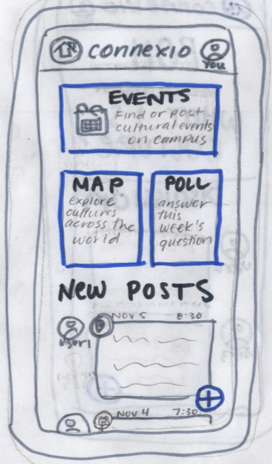 connexio
YOU
EVENTS
Find or post
cultural events
on campus
MAP
explore
cultures
across the
world
POLL
answer
this
week's
question
NEW POSTS
NOV 5 8:30
user1
NOV 4 7:30